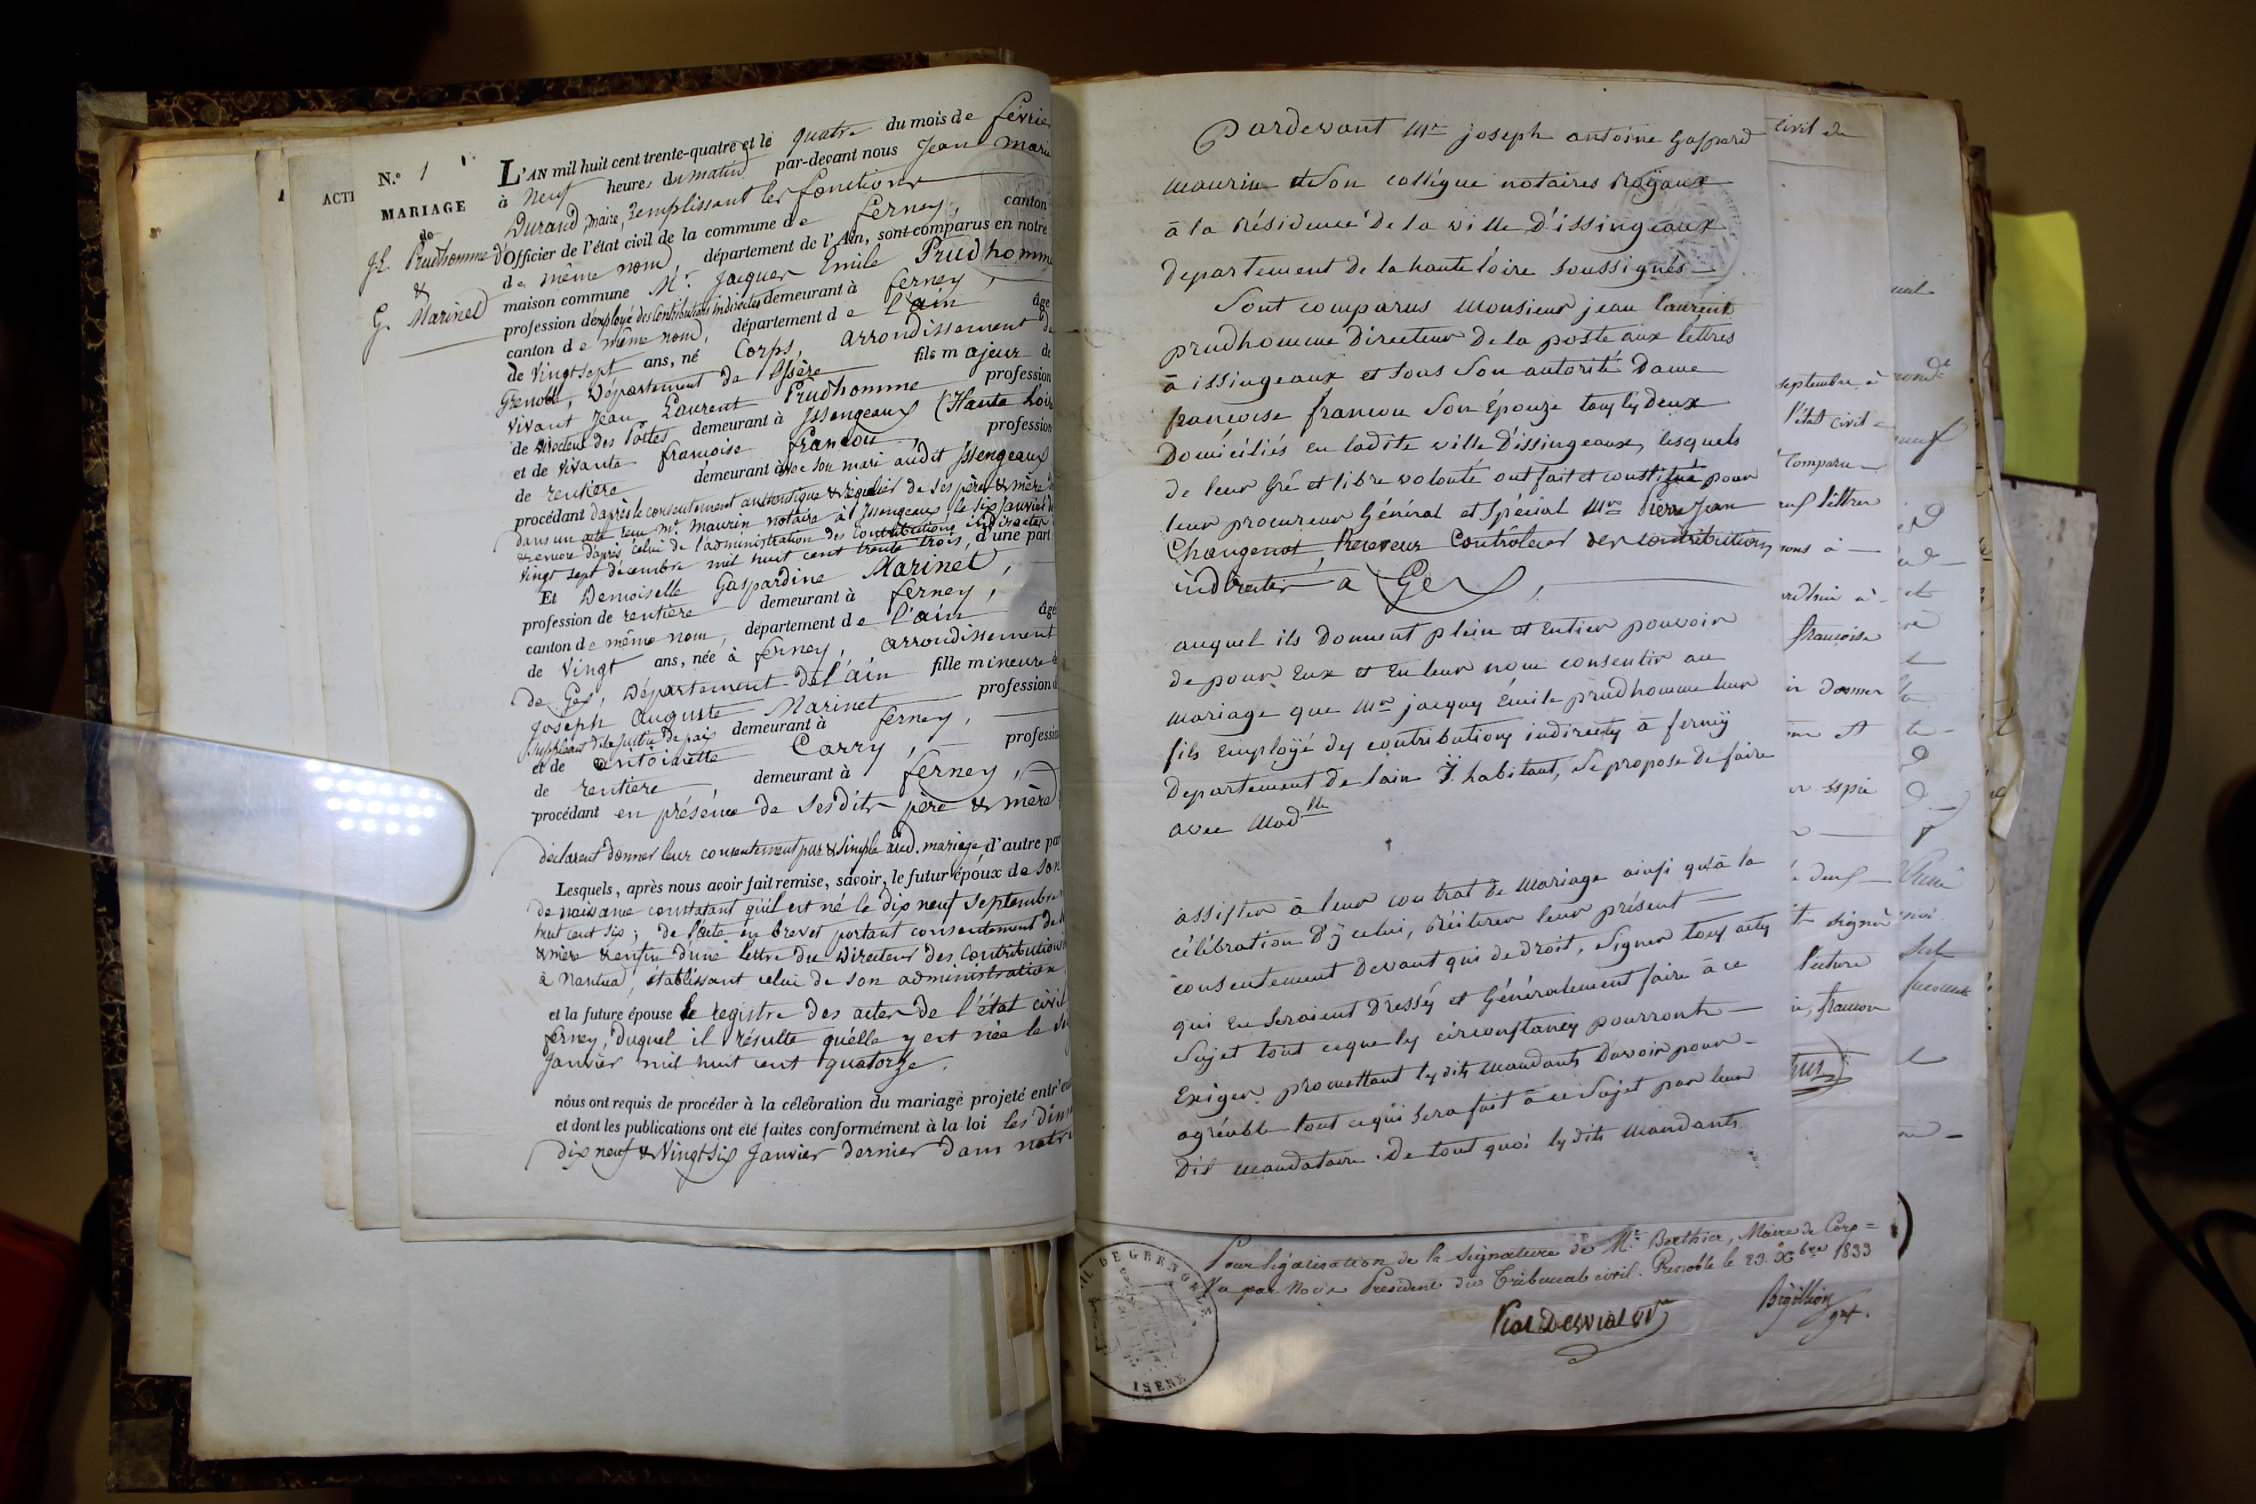 N.º 1
ACTE
MARIAGE
de
J. E. Prudhomme
&
G. Marinet
L'AN mil huit cent trente-quatre et le quatre du mois de février
à Neuf heures du matin par-devant nous Jean Marie
Durand, maire, remplissant les fonctions
d'Officier de l'état civil de la commune de ferney, canton
de même nom, département de l'Ain, sont comparus en notre
maison commune Mr. Jacques Emile Prudhomme
profession d'employé des Contributions indirectes demeurant à ferney,
canton de même nom, département de l'ain âgé
de Vingt sept ans, né Corps, arrondissement de
Grenoble, Département de l'Isère fils majeur de
vivant Jean Laurent Prudhomme profession
de Directeur des Postes demeurant à Issengeaux (Haute Loire
et de vivante françoise francou, profession
de rentière demeurant avec son mari audit Issengeaux
procédant d'après le consentement authentique & régulier de ses père & mère
dans un acte reçu Mr. Maurin notaire à Issengeaux, le six Janvier
& encore d'après celui de l'administration des Contributions indirectes
Vingt sept décembre mil huit cent trente trois, d'une part
Et Demoiselle Gaspardine Marinet,
profession de rentière demeurant à ferney,
canton de même nom, département de l'ain âgée
de Vingt ans, née à ferney, arrondissement
de Gex, Département de l'ain fille mineure de
Joseph Auguste Marinet profession de
suppléant de la Justice de paix demeurant à ferney,
et de antoinette Carry, profession
de rentière demeurant à ferney,
procédant en présence de ses dits père & mère
déclarent donner leur consentement pur & simple aud. mariage, d'autre part
Lesquels, après nous avoir fait remise, savoir, le futur époux de son
de naissance constatant qu'il est né le dix neuf septembre
huit cent six; de l'acte en brevet portant consentement de
& mère & enfin d'une lettre du Directeur des Contributions
à Nantua, établissant celui de son administration
et la future épouse le registre des actes de l'état civil
ferney, duquel il résulte qu'elle y est née le
Janvier mil huit cent quatorze.
nous ont requis de procéder à la célébration du mariage projeté entr'eux
et dont les publications ont été faites conformément à la loi les dim
dix neuf & Vingt six Janvier dernier dans notre
Pardevant Mre joseph antoine Gaspard
Maurin et son collègue notaires Royaux
à la résidence de la ville D'issingeaux
departement de la haute loire soussignés
Sont comparus Monsieur jean laurent
prudhomme Directeur De la poste aux lettres
à issingeaux et sous son autorité Dame
francoise francou son Epouze tous les deux
Domiciliés en ladite ville D'issingeaux, lesquels
de leur Gré et libre volonté ont fait et constitué pour
leur procureur Général et Spécial Mre Pierre Jean
Changenot, Receveur Contrôleur des Contributions
indirectes à Gex,
auquel ils Donnent plein et entier pouvoir
de pour Eux et En leur nom consentir au
Mariage que Mre jacques Emile prudhomme leur
fils Employé des contributions indirectes à ferney
departement de lain Y habitant, se propose de faire
avec Madlle
assister à leur contrat de Mariage ainsi qu'à la
célébration D'ycelui, réiterer leur présent
consentement Devant qui de Droit, signer tous actes
qui En seraient Dressés et Généralement faire à ce
Sujet tout ce que les circonstances pourront
Exiger promettant lesdits Mandants D'avoir pour
agréable tout ce qui sera fait à ce sujet par leur
Dit Mandataire. De tout quoi lesdits Mandants
Pour légalisation de la signature de Mr. Berthier, Maire de Corps
Vu par Nous Président du Tribunal civil. Grenoble le 23 Xbre 1833
civil de
septembre à
l'état civil
Comparu
françoise
donner
signé
lecture
francou
DE GRENOBLE
ISERE